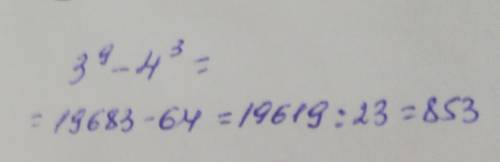 3⁹ - 4³ =
= 19683 - 64 = 19619 : 23 = 853